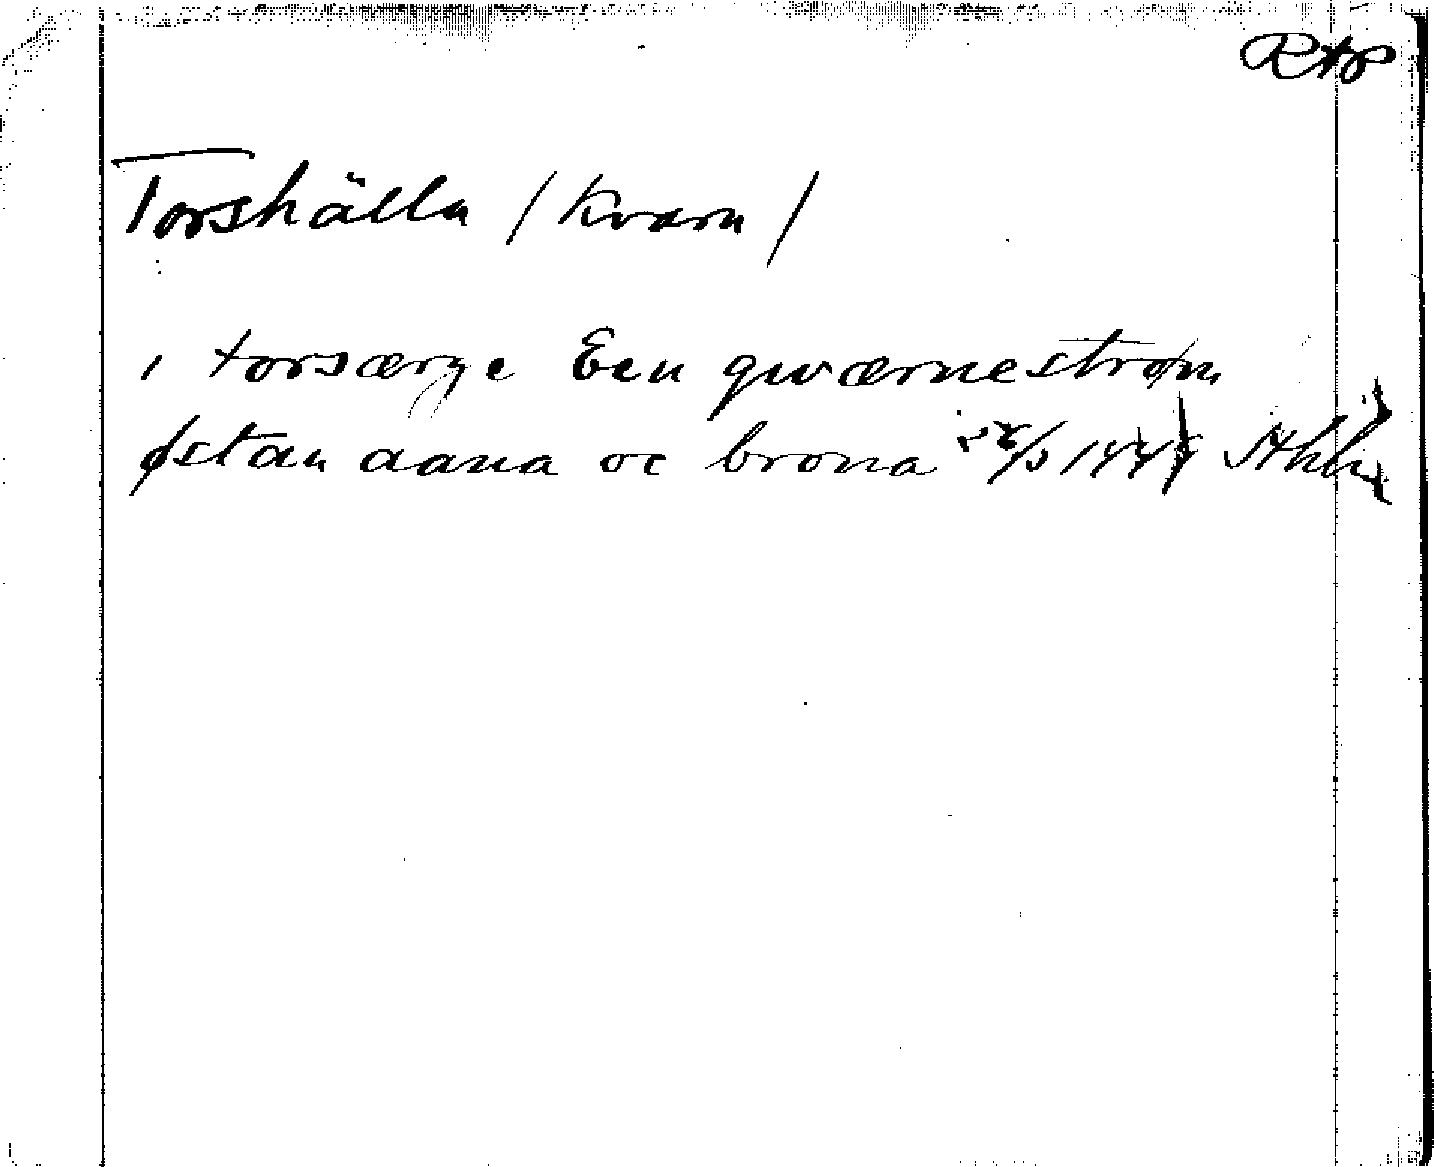 RAp
Torshälla / kvarn /
i torsærge Een qwærnestrøm
østan aana oc brona 22/5 144 Sthlm